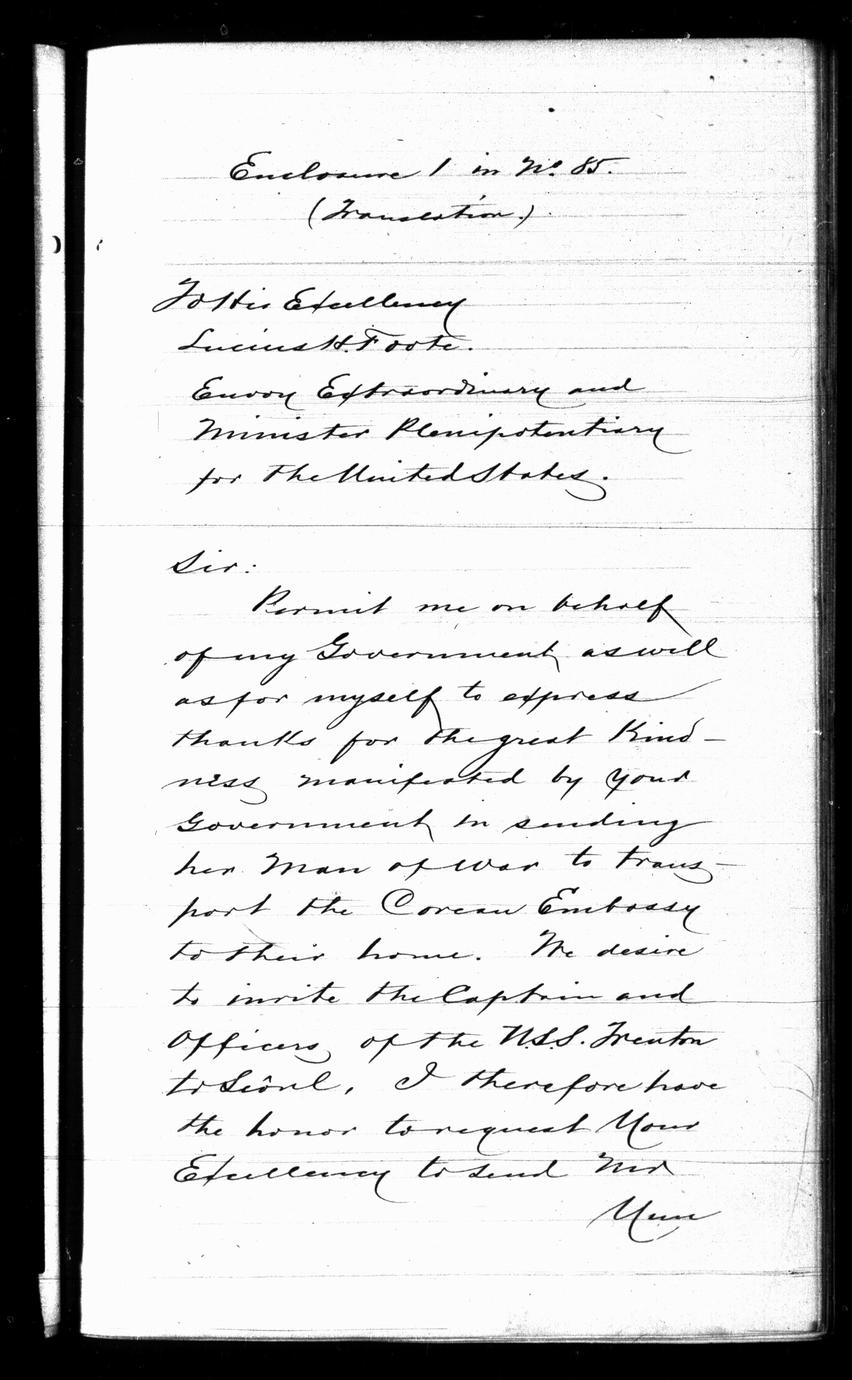 Enclosure 1 in No. 85.
(Translation.)
To His Excellency
Lucius H. Foote.
Envoy Extraordinary and
Minister Plenipotentiary
for the United States.
Sir:
Permit me on behalf
of my Government, as well
as for myself, to express
thanks for the great kind-
ness manifested by your
Government, in sending
her Man of War to trans-
port the Corean Embassy
to their home. We desire
to invite the Captain and
Officers of the U.S.S. Trenton
to Seöul, I therefore have
the honor to request Your
Excellency to send Mr